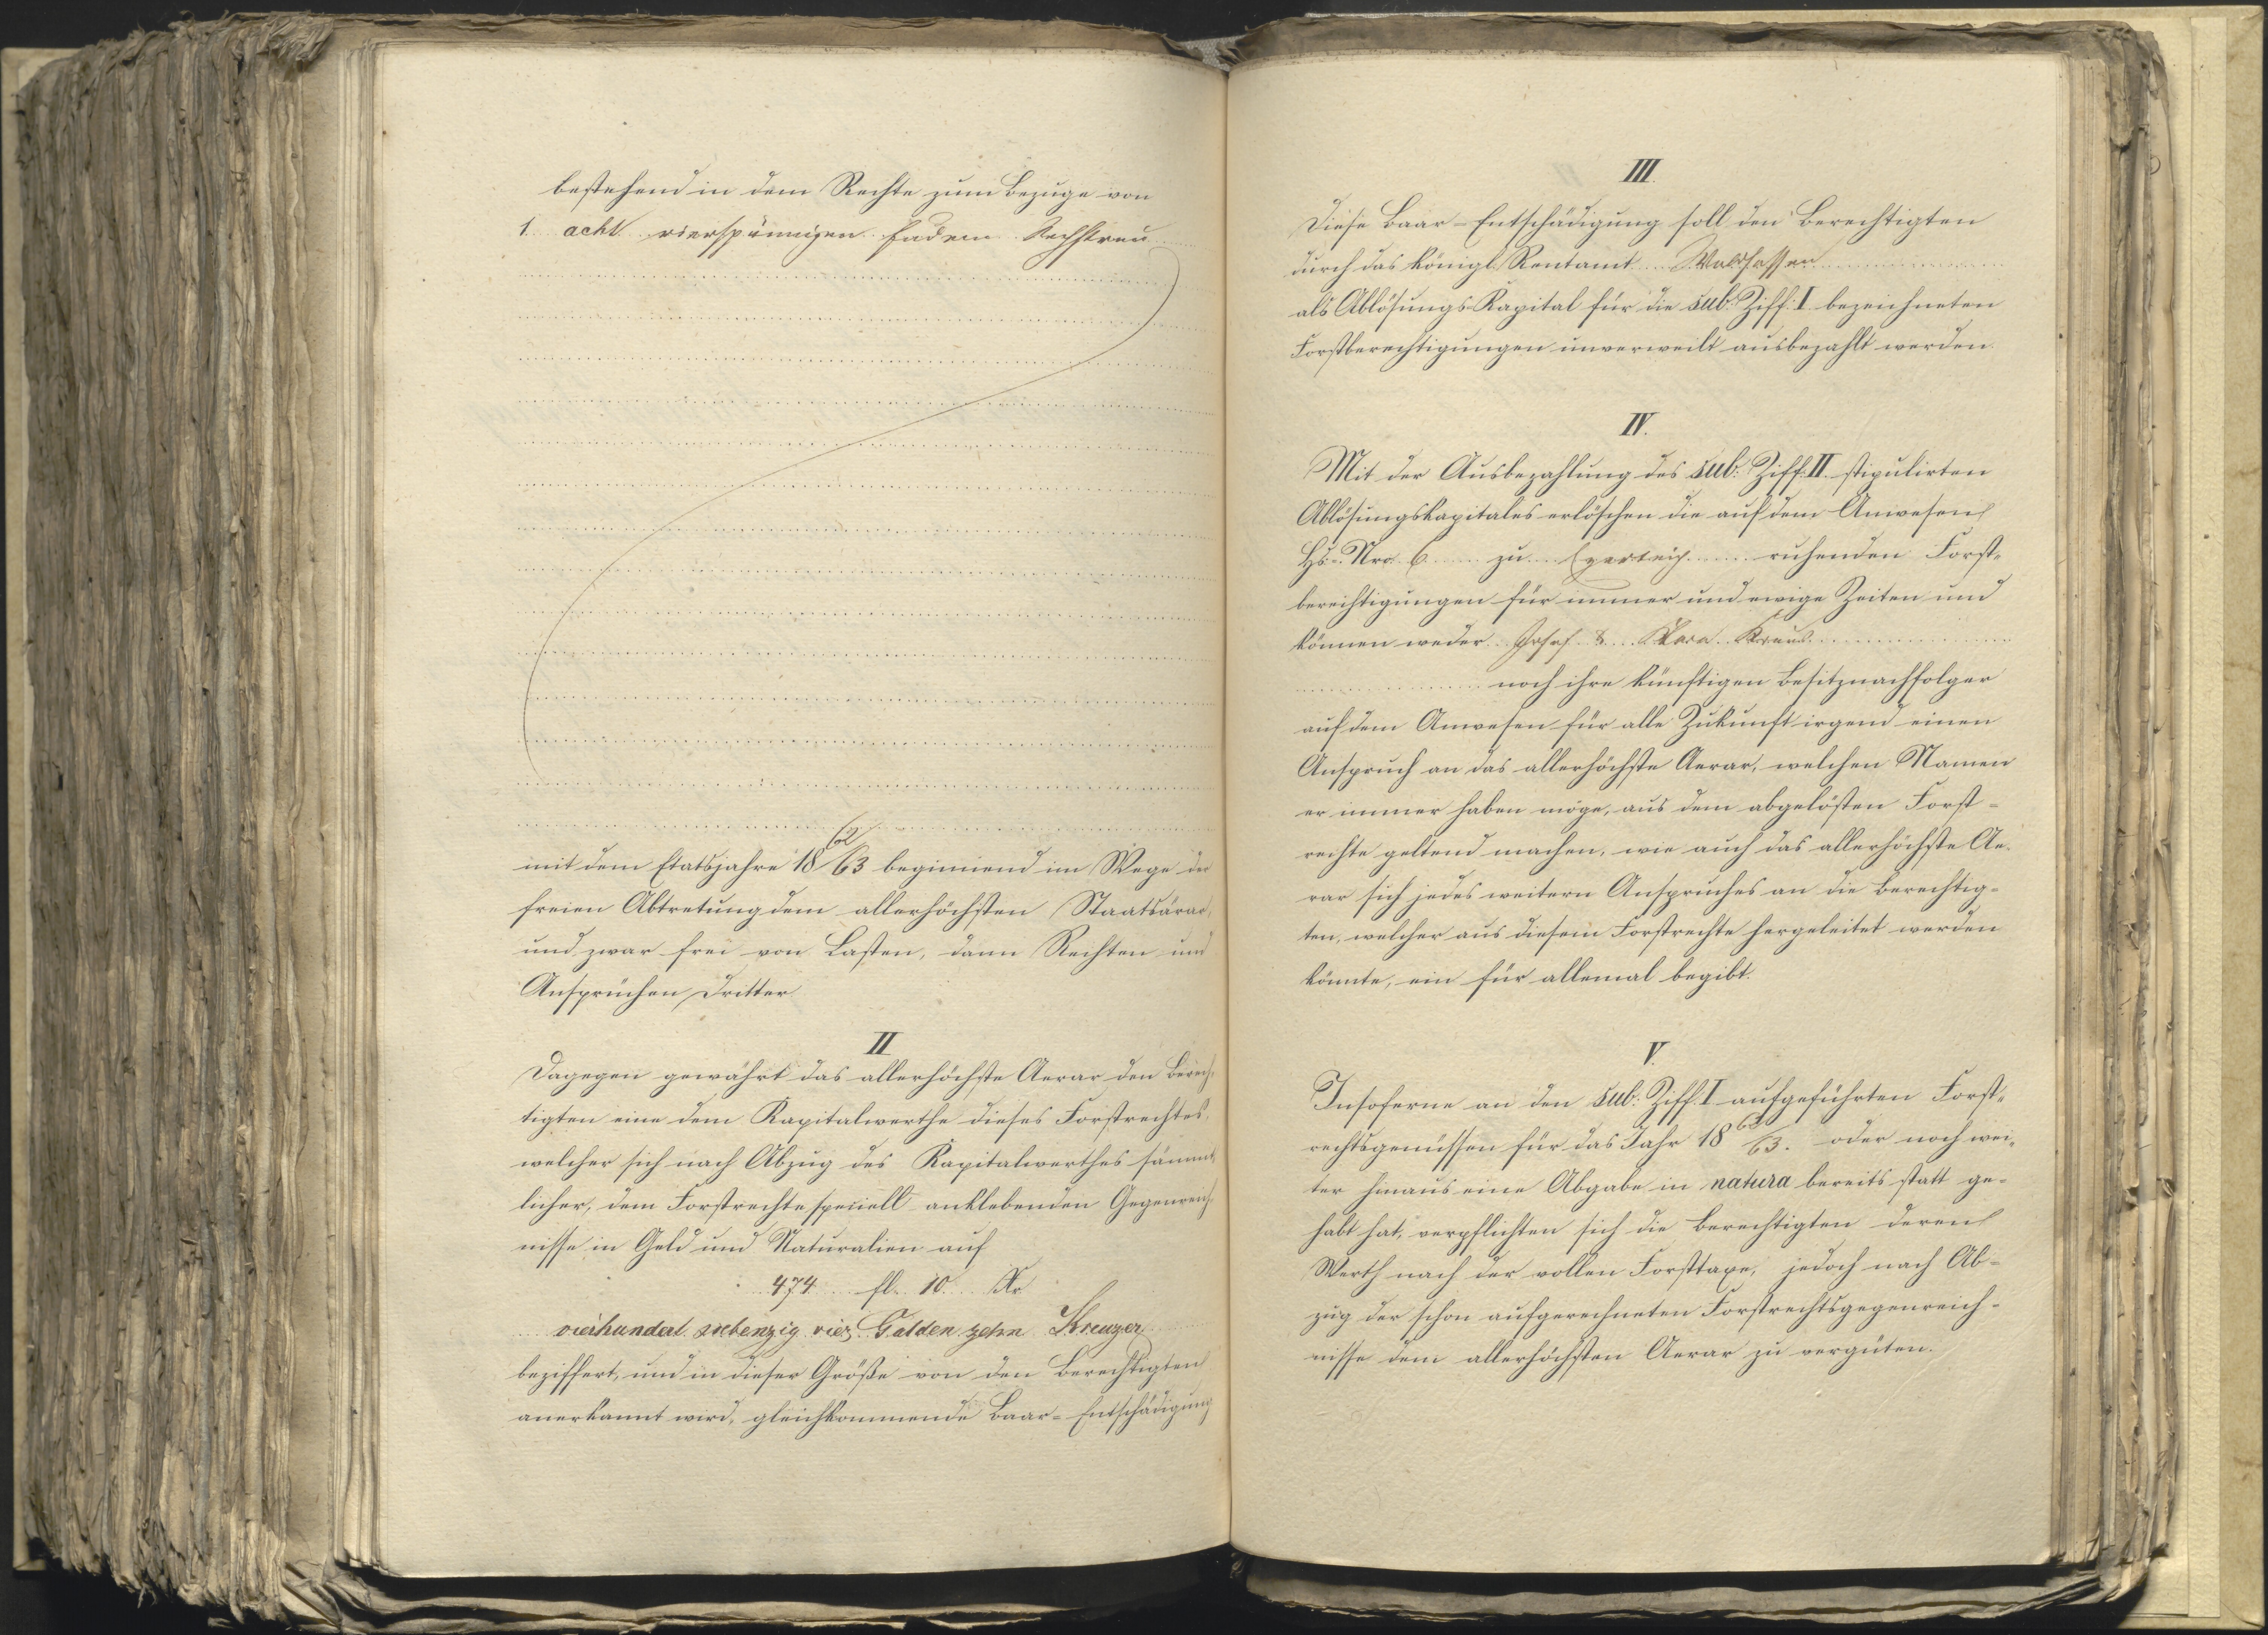 bestehend in dem Rechte zum Bezuge von
1. acht vierspännigen Fudern Rechstreu
mit dem Etatsjahre 18 62/63 beginnend im Wege der
freien Abtretung dem allerhöchsten Staatsärar,
und zwar frei von Lasten, dann Rechten und
Ansprüchen Dritter.
II
Dagegen gewährt das allerhöchste Aerar den Berech-
tigten eine dem Kapitalwerthe dieses Forstrechtes,
welcher sich nach Abzug des Kapitalwerthes sämmt-
licher, dem Forstrechte speciell anklebenden Gegenreich-
nisse in Geld und Naturalien auf
474 fl. 10. Kr
vierhundert siebenzig vier Gulden zehn Kreuzer
beziffert, und in dieser Größe von den Berechtigten
anerkannt wird, gleichkommende Baar-Entschädigung
III.
Diese Baar-Entschädigung soll den Berechtigten
durch das königl. Rentamt Waldsassen
als Ablösungs-Kapital für die sub. Ziff. I bezeichneten
Forstberechtigungen unverweilt ausbezahlt werden.
IV.
Mit der Ausbezahlung des sub. Ziff. II. stipulirten
Ablösungskapitales erlöschen die auf dem Anwesen
Hs. Nro. 6 zu ruhenden Forst-
berechtigungen für immer und ewige Zeiten und
können weder Josef & Klara Kraus
noch ihre künftigen Besitznachfolger
auf dem Anwesen für alle Zukunft irgend einen
Anspruch an das allerhöchste Aerar, welchen Namen
er immer haben möge, aus dem abgelösten Forst-
rechte geltend machen, wie auch das allerhöchste Ae-
rar sich jedes weitern Anspruches an die Berechtig-
ten, welcher aus diesem Forstrechte hergeleitet werden
könnte, ein für allemal begibt.
V.
Insoferne an den sub. Ziff. I aufgeführten Forst-
rechtsgenüssen für das Jahr 18 62/63. oder noch wei-
ter hinaus eine Abgabe in natura bereits statt ge-
habt hat, verpflichten sich die Berechtigten deren
Werth nach der vollen Forsttaxe, jedoch nach Ab-
zug der schon aufgerechneten Forstrechtsgegenreich-
nisse dem allerhöchsten Aerar zu vergüten.